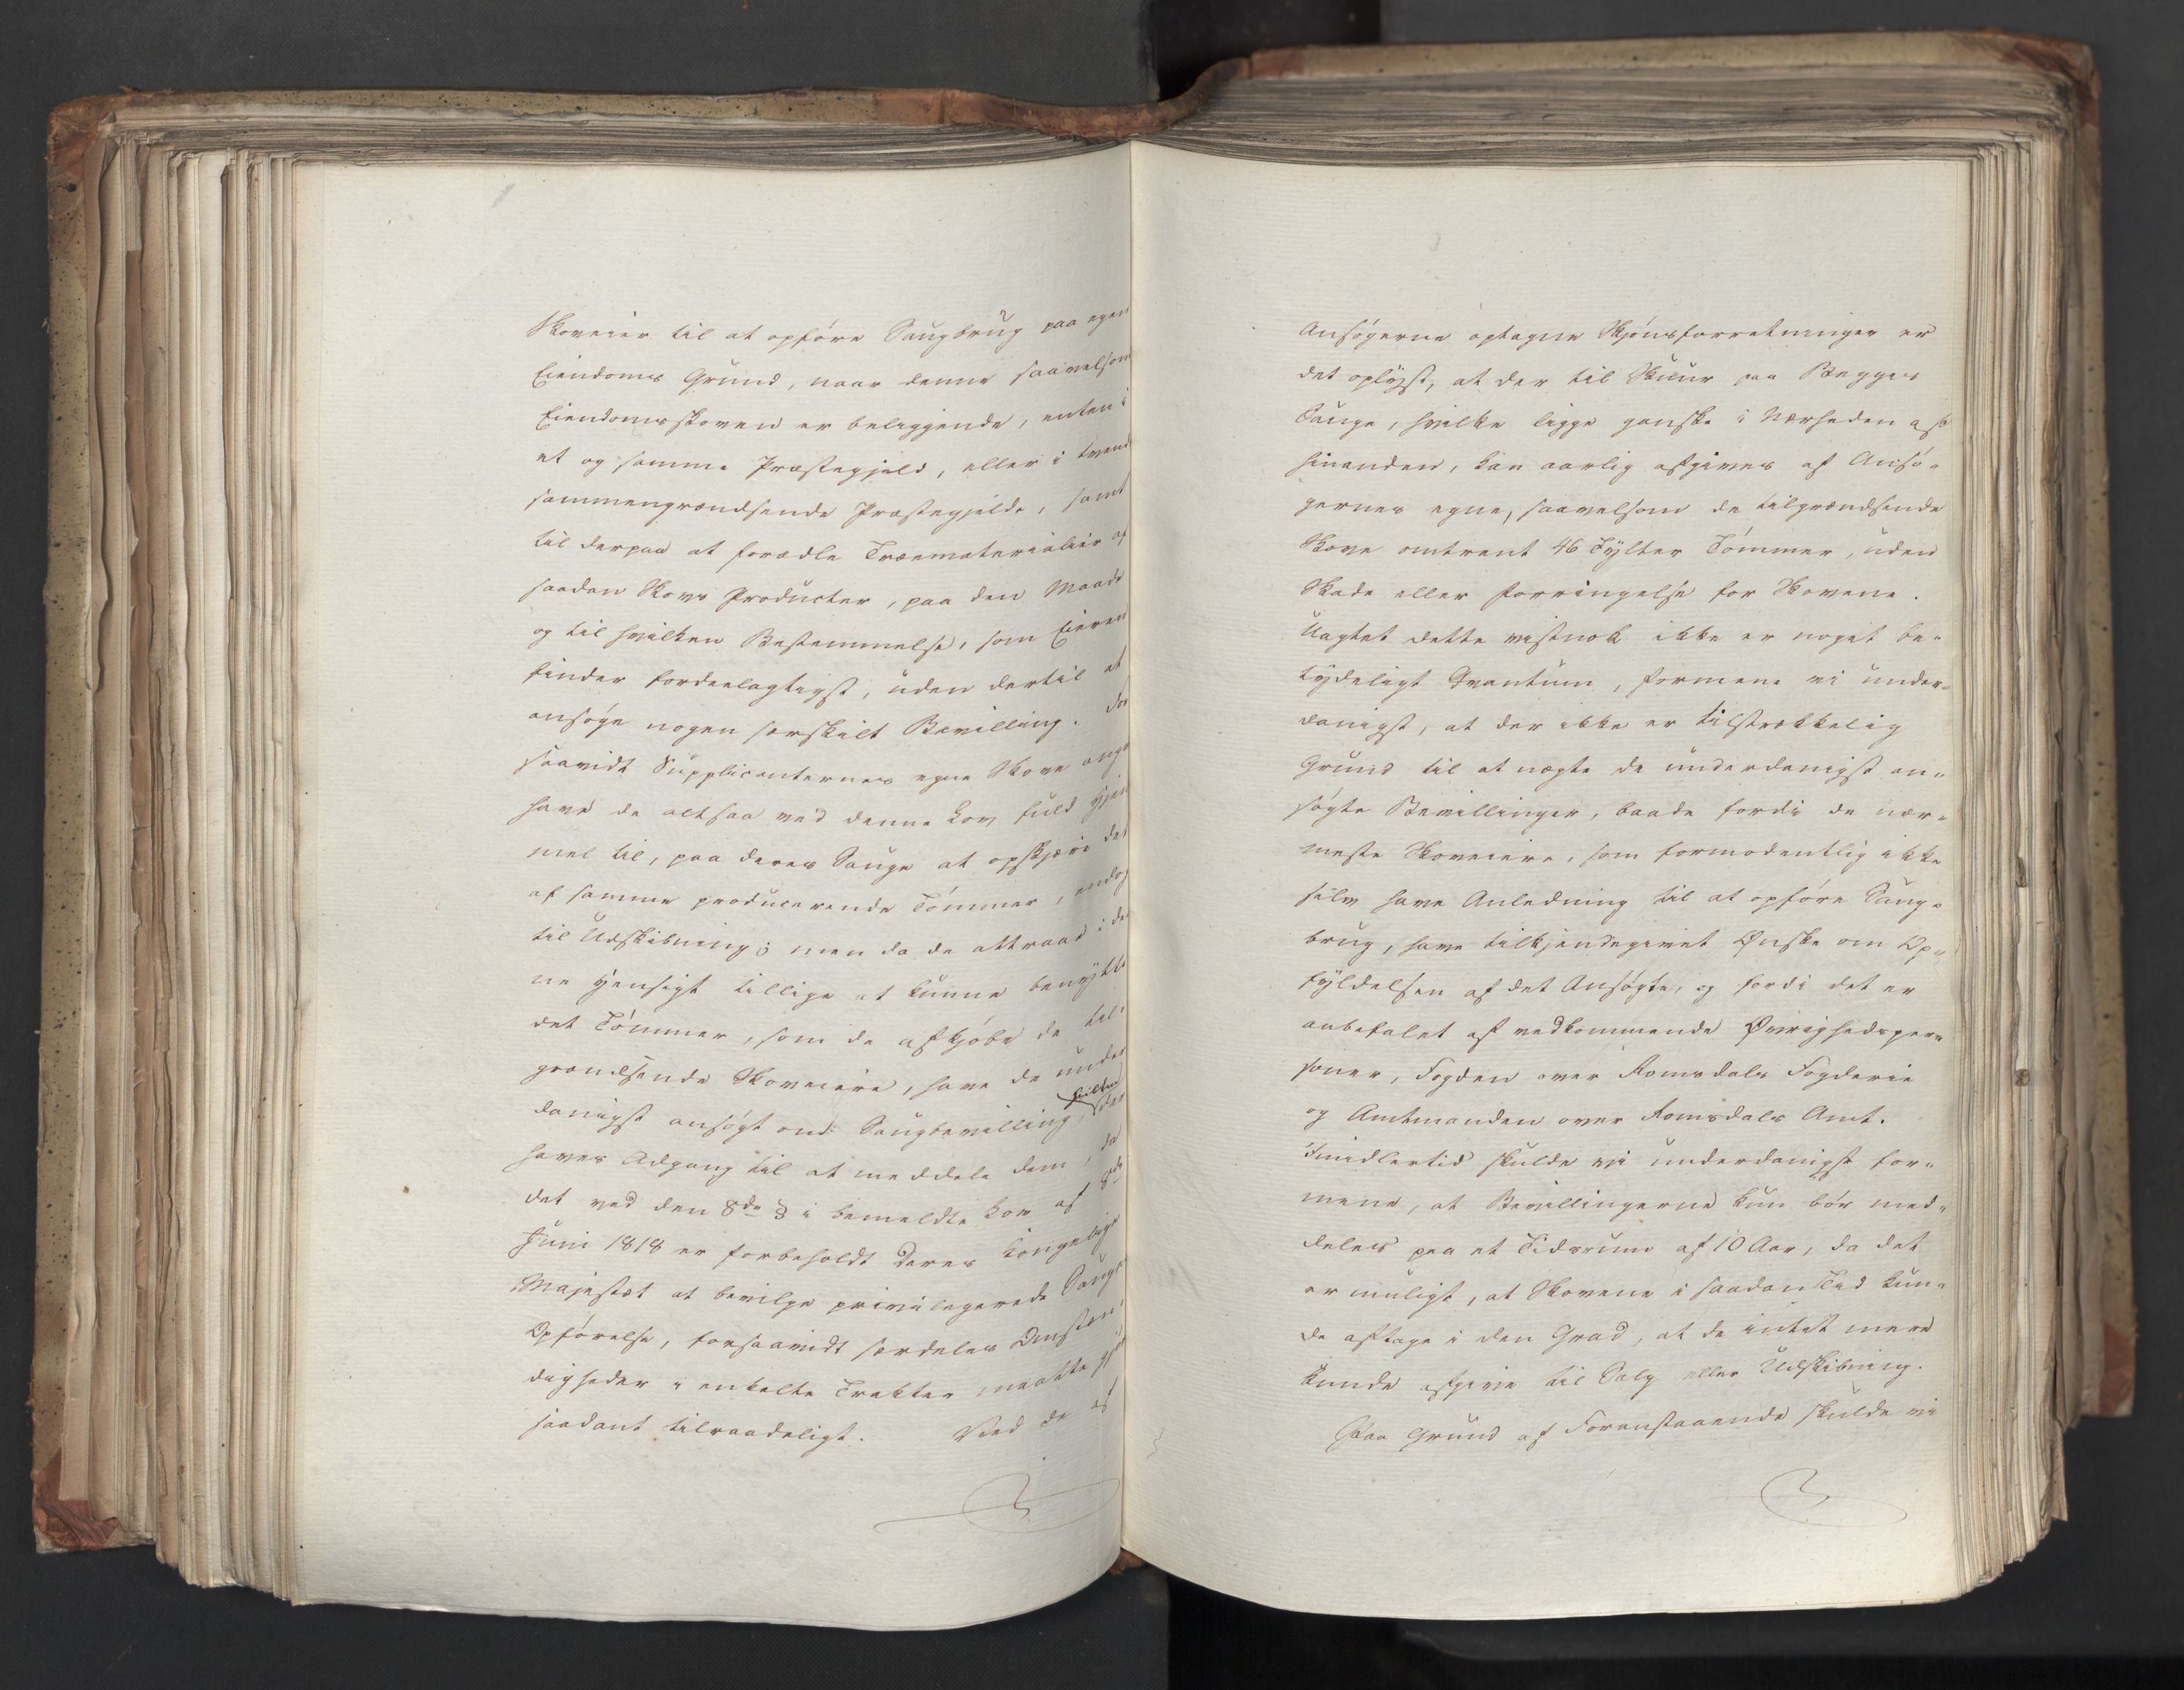 Skoveier til at opføre Saugbrug paa egen
Eiendoms Grund, naar denne saavelsom
Eiendomsskoven er beliggende, enten i
et og samme Præstegjeld, eller i tvende
sammengrændsende Præstegjelde, samt
til derpaa at forædle Træmaterialier af
saadan Skovs Producter, paa den Maade
og til hvilken Bestemmelse, som Eieren
finder fordeelagtigst, uden dertil at
ansøge nogen særskilt Bevilling. For
saavidt Supplicanternes egne Skove ang
have de altsaa ved denne Lov fuld Hjem
mel til, paa deres Sauge at opskjære det
af samme producerende Tømmer, endog
til Udskibning; men da de attraae i den
ne Hensigt tillige at kunne benytte
det Tømmer, som de afkjøbe de til-
grændsende Skoveiere, have de under
danigst ansøgt om Saugbevilling, hvilken
haves Adgang til at meddele dem, da
det ved den 8de § i bemeldte Lov af 8de
Juni 1818 er forbeholdt Deres Kongelige
Majestæt at bevilge privilegerede Sauges
Opførelse, forsaavidt særdeles Omstæn-
digheder i enkelte Trakter maatte gjøre
saadant tilraadeligt. Ved de af
Ansøgerne optagne Skjønsforretninger er
det oplyst, at der til Skuur paa Begges
Sauge, hvilke ligge ganske i Nærheden af
hinanden, kan aarlig afgives af Ansø-
gernes egne, saavelsom de tilgrændsende
Skove omtrent 46 Tylter Tømmer, uden
Skade eller Forringelse for Skovene.
Uagtet dette vistnok ikke er noget be-
tydeligt Qvantum, formene vi under-
danigst, at der ikke er tilstrækkelig
Grund til at nægte de underdanigst an-
søgte Bevillinger, baade fordi de nær-
meste Skoveiere, som formodentlig ikke
selv have Anledning til at opføre Saug-
brug, have tilkjendegivet Ønske om Op-
fyldelsen af det Ansøgte, og fordi det er
anbefalet af vedkommende Øvrighedsper-
soner, Fogden over Romsdals Fogderie
og Amtmanden over Romsdals Amt.
Imidlertid skulde vi underdanigst for-
mene, at Bevillingerne kun bør med-
deles paa et Tidsrum af 10 Aar, da det
er muligt, at Skovene i saadan Tid kun-
de aftage i den Grad, at de intet mere
kunde afgive til Salg eller Udskibning.
Paa Grund af Foranstaaende skulde vi